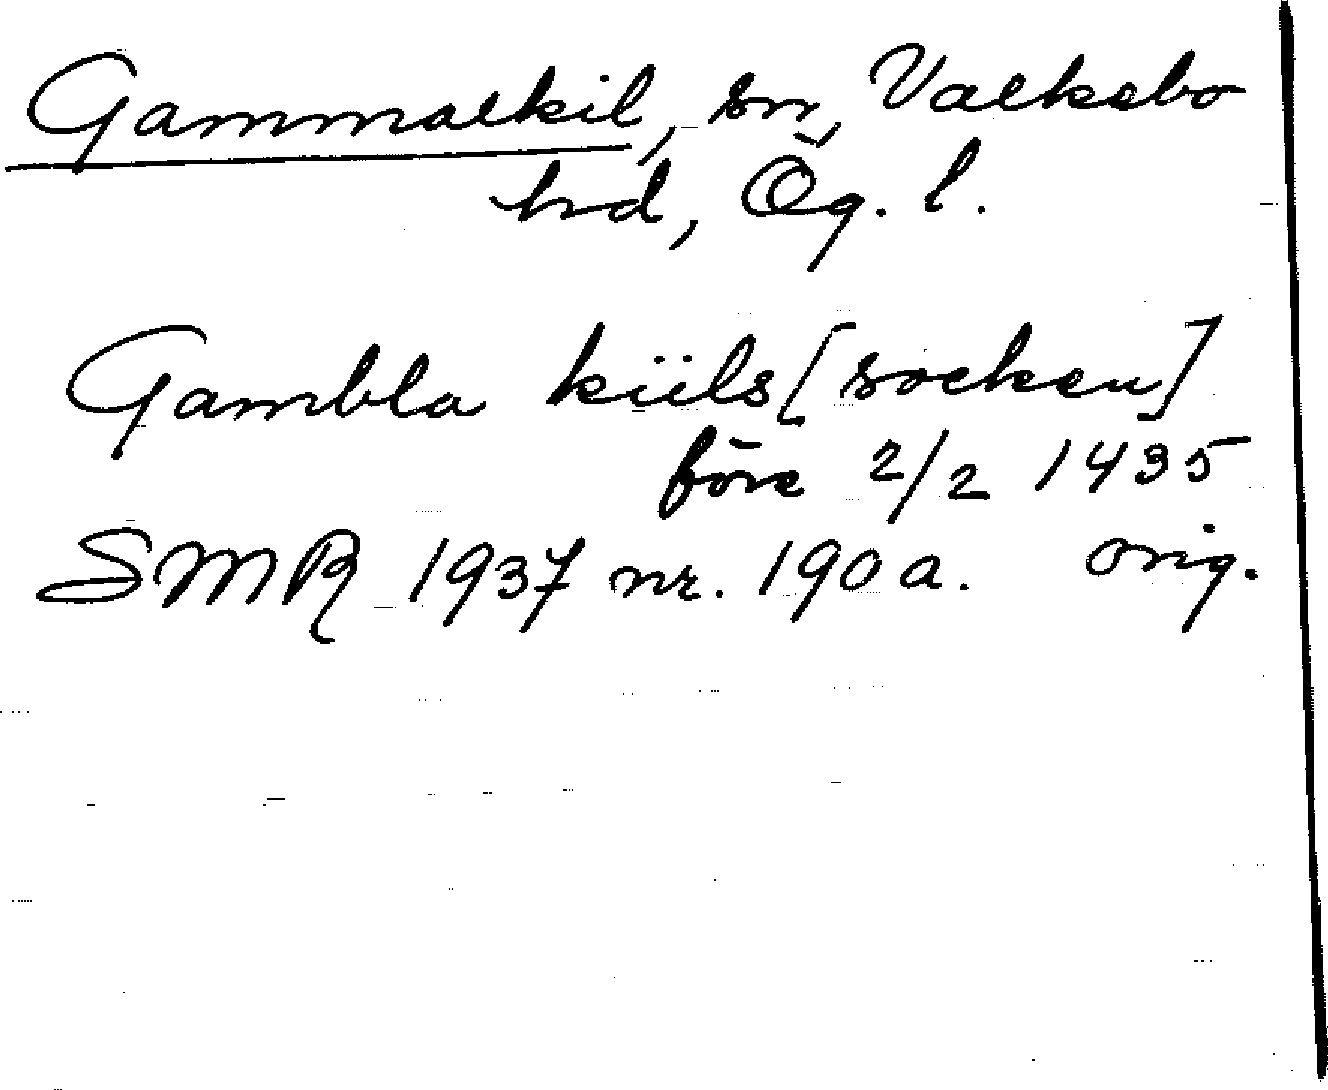 Gammalkil, sn, Valkebo
hrd, Ög. l.
Gambla kiils [socken]
före 2/2 1435
SMR 1937 nr. 190 a. orig.